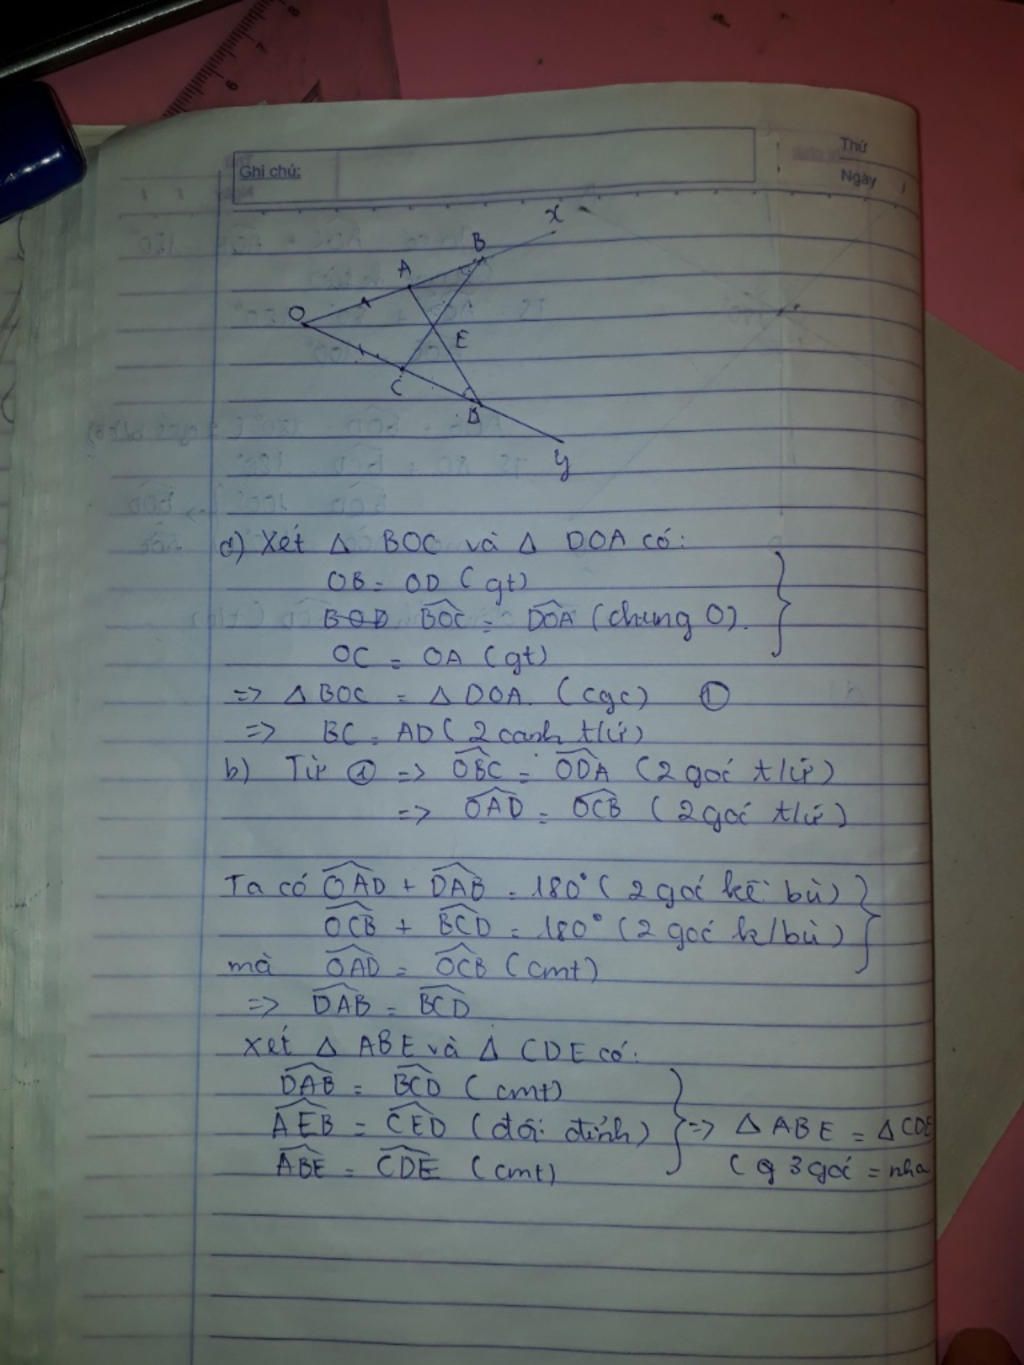 8
7
6
Ghi chú:
Thứ
Ngày
x
B
A
O
E
C
D
y
a) Xét Δ BOC và Δ DOA có:
OB = OD (gt)
BOD BOC = DOA (chung O).
OC = OA (gt)
=> Δ BOC = Δ DOA. (cgc) ①
=> BC = AD (2 cạnh t/ứ)
b) Từ ① => OBC = ODA (2 góc t/ứ)
=> OAD = OCB (2 góc t/ứ)
Ta có OAD + DAB = 180° (2 góc kề bù)
OCB + BCD = 180° (2 góc k/bù)
mà OAD = OCB (cmt)
=> DAB = BCD
xét Δ ABE và Δ CDE có:
DAB = BCD (cmt)
AEB = CED (đối đỉnh) => Δ ABE = Δ CDE
ABE = CDE (cmt) ( 3 góc = nha